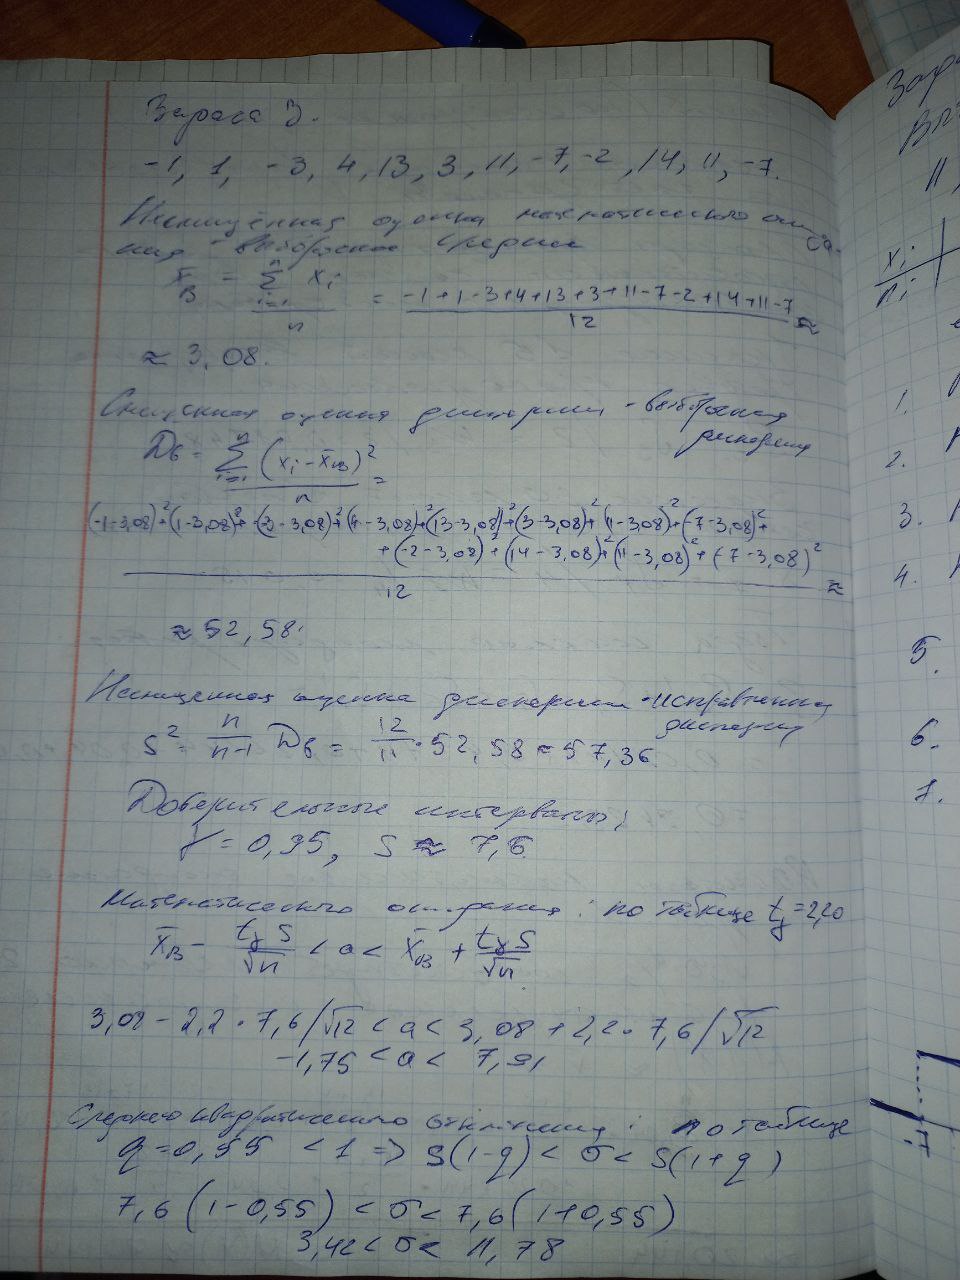 Задача 3.
-1, 1, -3, 4, 13, 3, 11, -7, -2, 14, 11, -7.
Несмещённая оценка математического ожида-
ния - выборочное среднее
x̄_B = Σ_{i=1}^{n} x_i / n = (-1+1-3+4+13+3+11-7-2+14+11-7) / 12 ≈
≈ 3,08.
Смещенная оценка дисперсии - выборочная
дисперсия
D_B = Σ_{i=1}^{n} (x_i - x̄_B)² / n =
(-1-3,08)²+(1-3,08)²+(-3-3,08)²+(4-3,08)²+(13-3,08)²+(3-3,08)²+(11-3,08)²+(-7-3,08)²+
+(-2-3,08)²+(14-3,08)²+(11-3,08)²+(-7-3,08)²
12 ≈
≈ 52,58.
Несмещенная оценка дисперсии - исправленная
дисперсия
S² = n/(n-1) D_B = 12/11 · 52,58 = 57,36.
Доверительные интервалы:
γ = 0,95, S ≈ 7,6
Математического ожидания: по таблице t_γ = 2,20
x̄_B - t_γ S/√n < a < x̄_B + t_γ S/√n
3,08 - 2,2 · 7,6/√12 < a < 3,08 + 2,2 · 7,6/√12
-1,75 < a < 7,91
Среднего квадратического отклонения: по таблице
q = 0,55 < 1 => S(1-q) < σ < S(1+q)
7,6(1-0,55) < σ < 7,6(1+0,55)
3,42 < σ < 11,78
Вы
11,
x_i
n_i
1.
2.
3.
4.
5.
6.
7.
-7